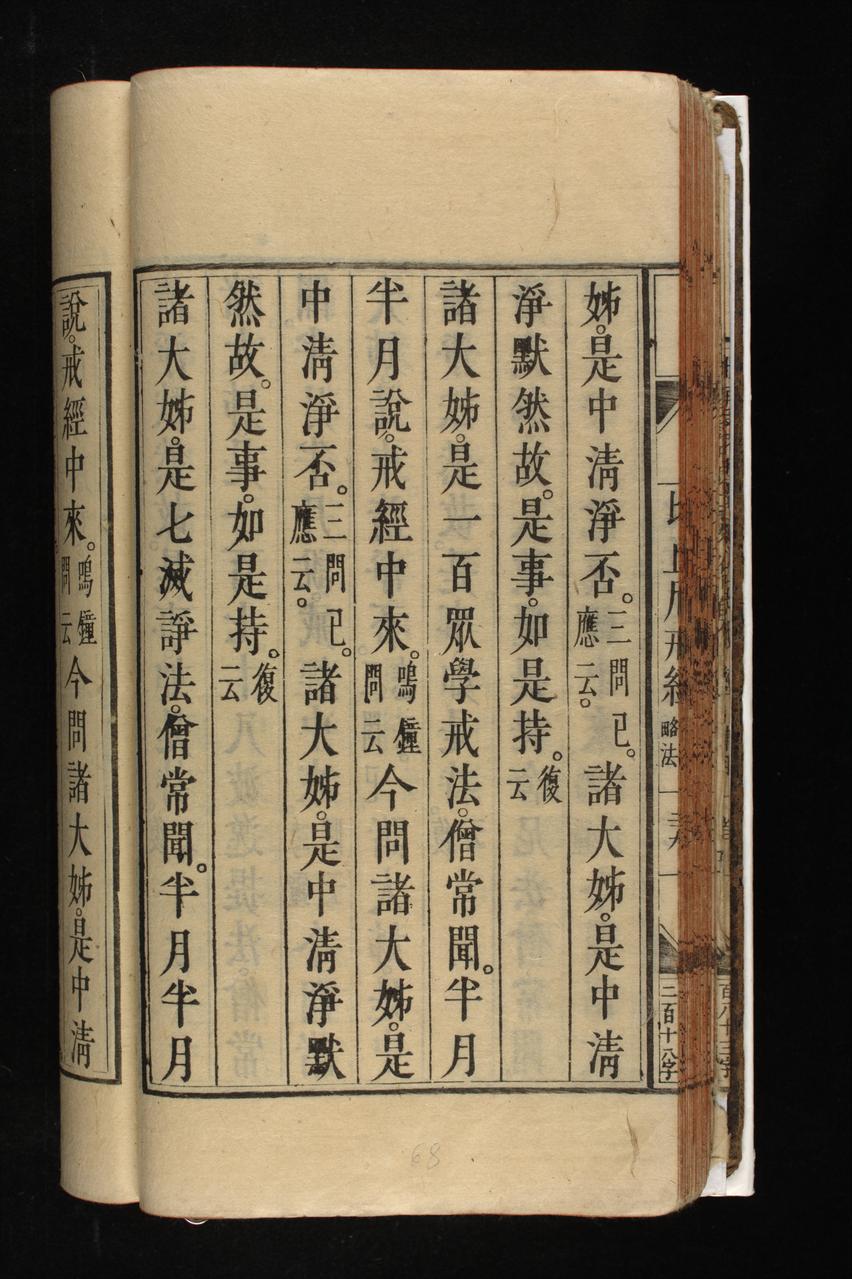 姊。是中清淨否。三問已。應云。諸大姊。是中清
淨默然故。是事。如是持。復云
諸大姊。是一百眾學戒法。僧常聞。半月
半月說。戒經中來。鳴鐘問云今問諸大姊。是
中清淨否。三問已。應云。諸大姊。是中清淨默
然故。是事。如是持。復云
諸大姊。是七滅諍法。僧常聞。半月半月
說。戒經中來。鳴鐘問云今問諸大姊。是中清
略法
二百十八字
68